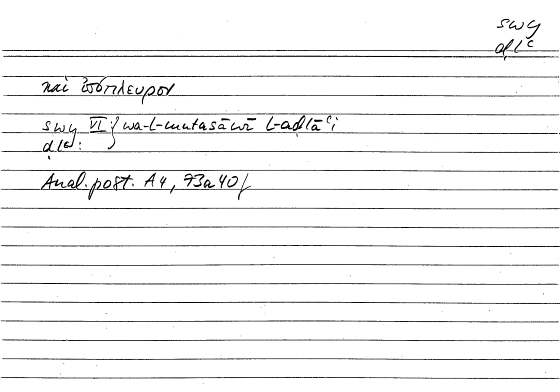 swy
ḍlʿ
καὶ ἰσόπλευρον
swy VI } wa-l-mutasāwī l-aḍlāʿi
ḍlʿ:
Anal. post. A4, 73a40/